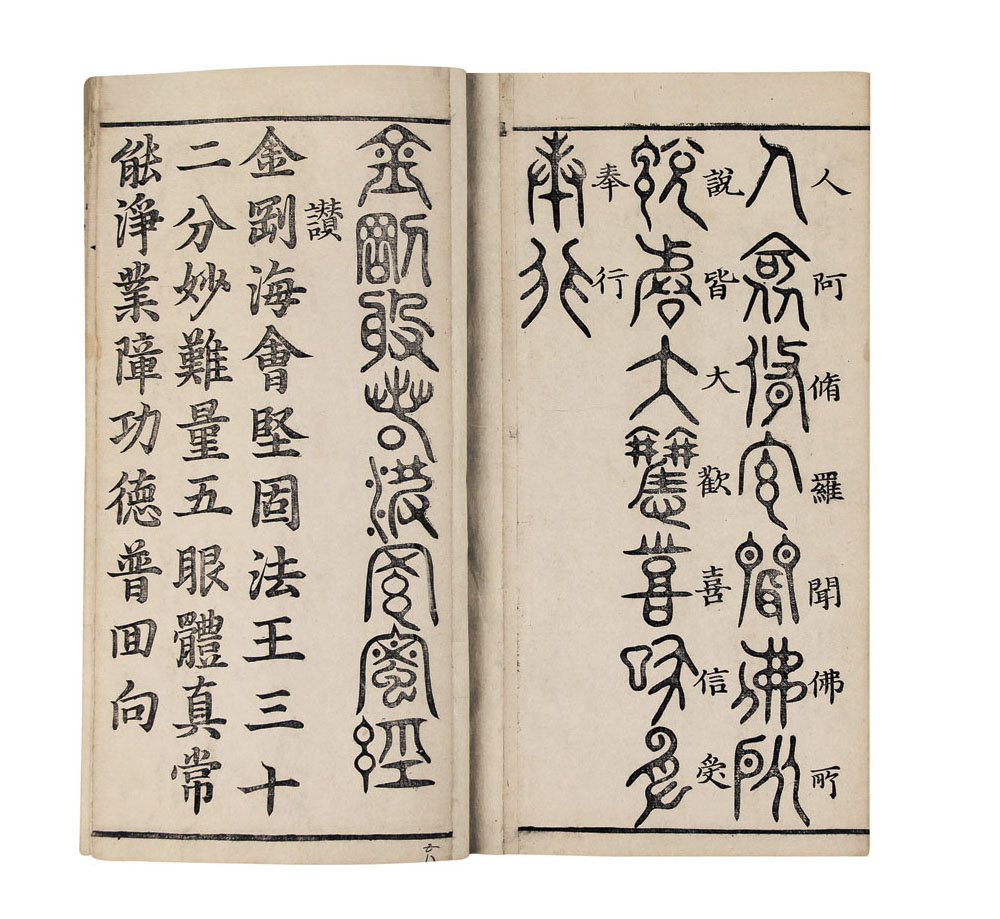 人阿脩羅聞佛所
人阿脩羅聞佛所
說皆大歡喜信受
說皆大歡喜信受
奉行
奉行
金剛般若波羅蜜經
讚
金剛海會堅固法王三十
二分妙難量五眼體真常
能淨業障功德普囬向